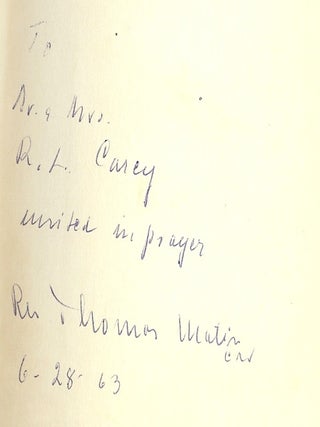 To
Dr. & Mrs.
R. L. Carey
united in prayer
Rev Thomas Matin
6-28-63